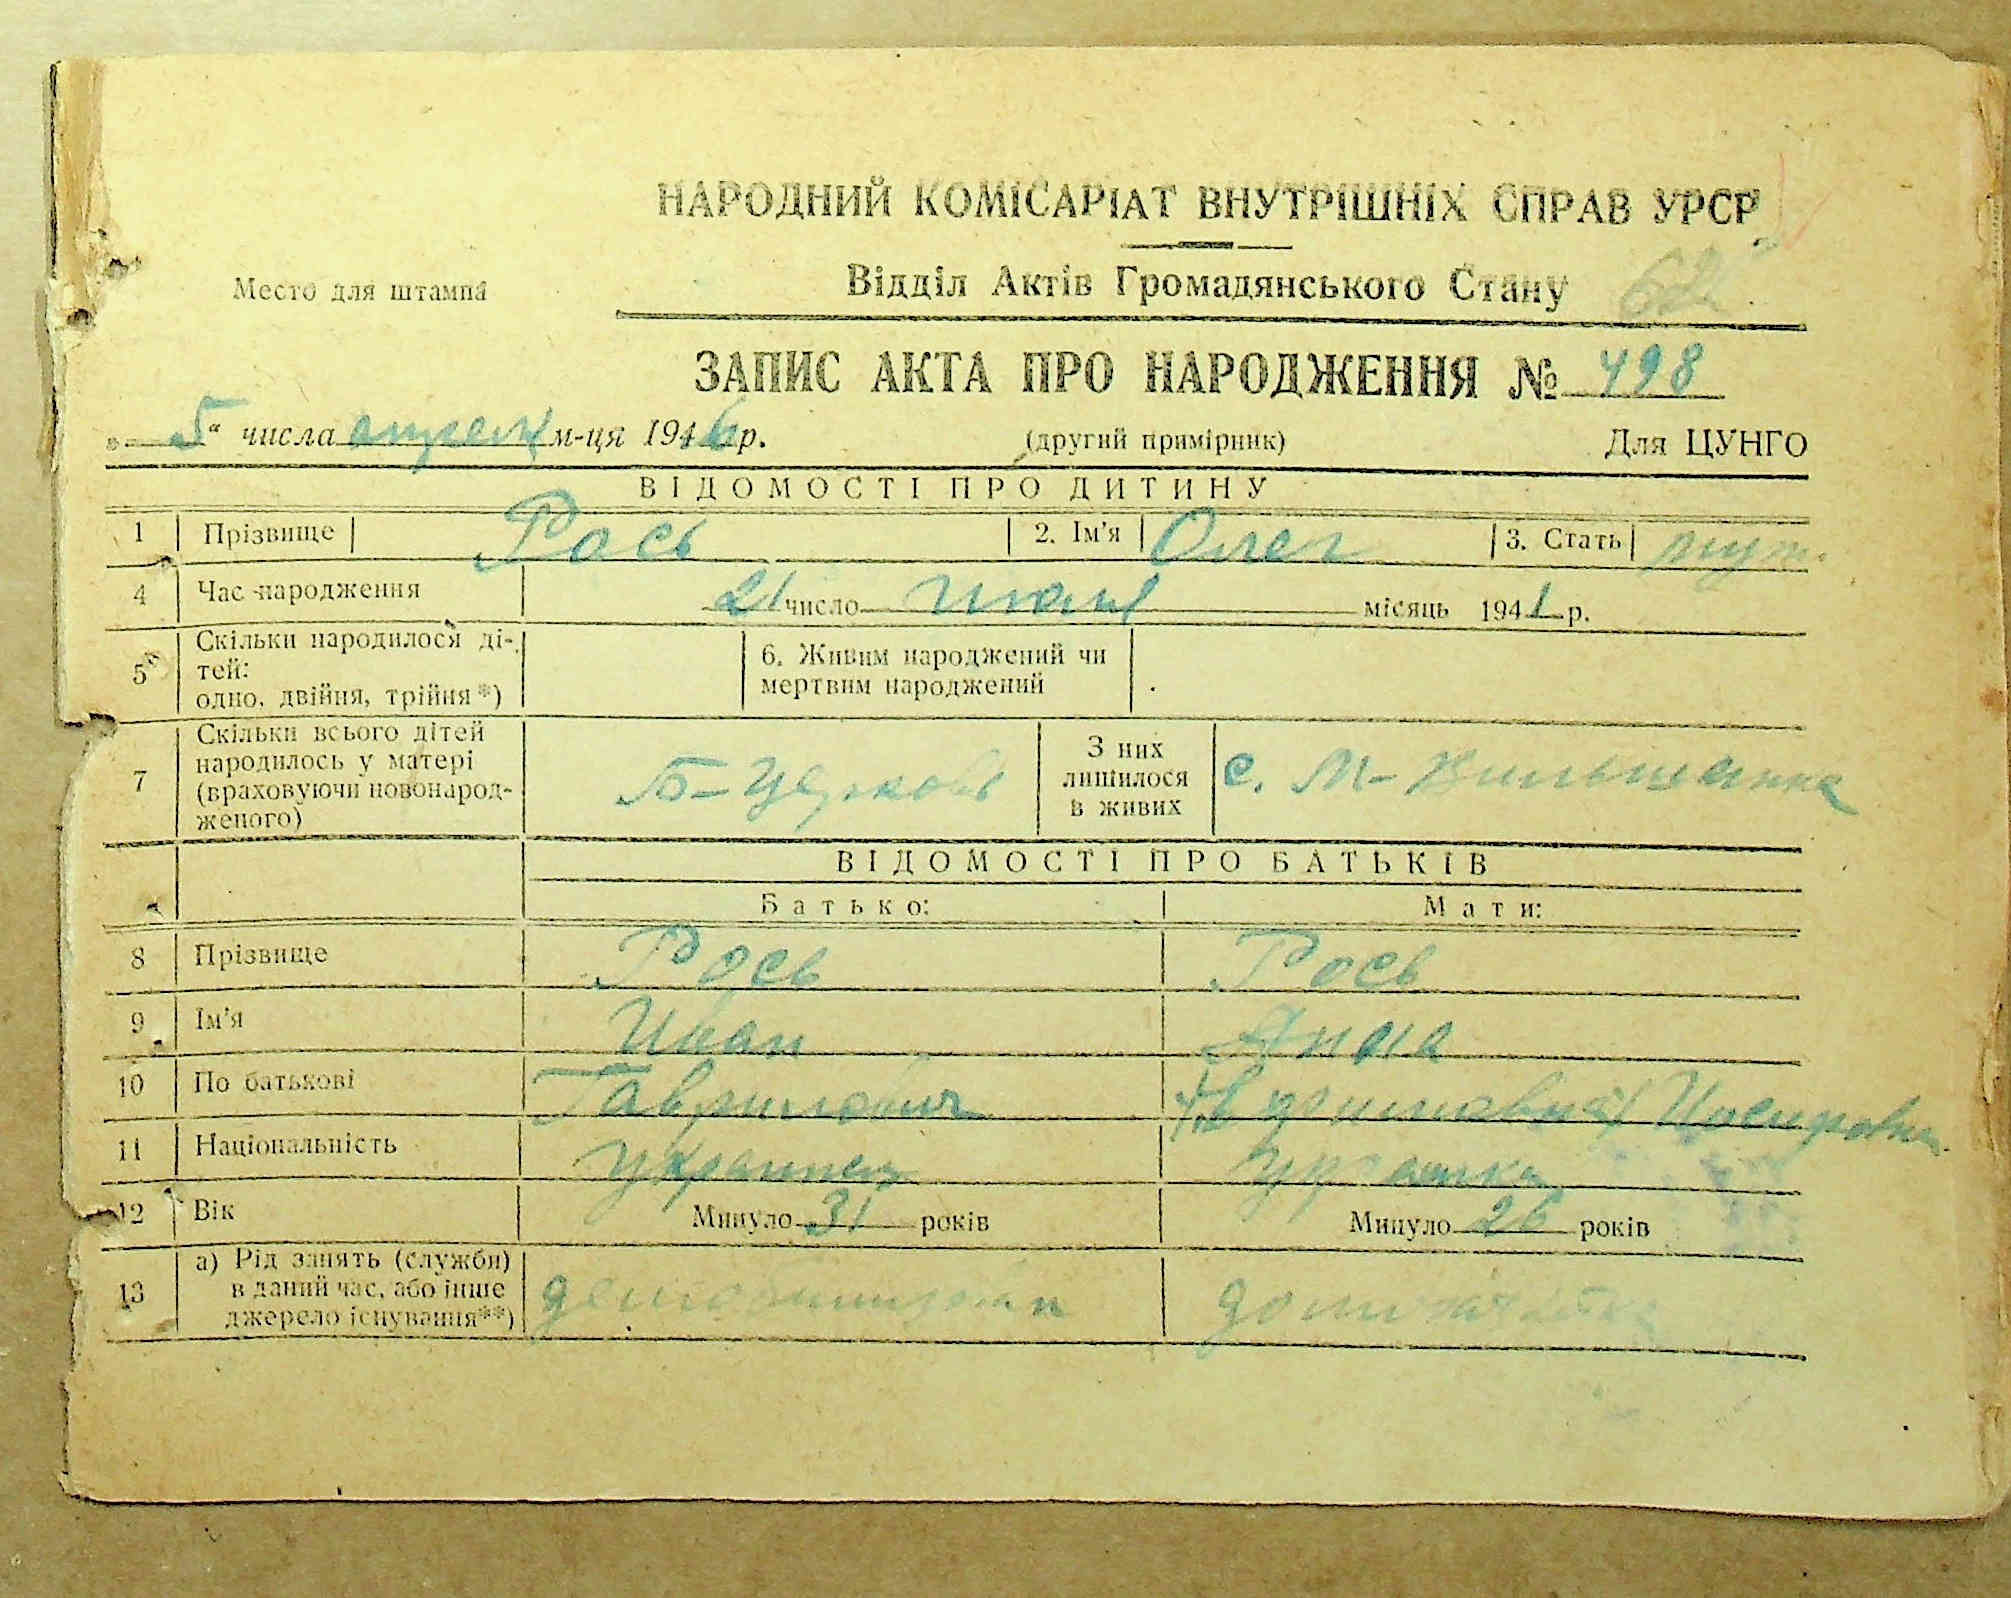 НАРОДНИЙ КОМІСАРІАТ ВНУТРІШНІХ СПРАВ УРСР
Место для штампа
Відділ Актів Громадянського Стану 62
ЗАПИС АКТА ПРО НАРОДЖЕННЯ № 498
„5“ числа апреля м-ця 1946 р. (другий примірник) Для ЦУНГО
ВІДОМОСТІ ПРО ДИТИНУ
1 Прізвище Рось 2. Ім'я Олег 3. Стать муж.
4 Час народження 21 число июля місяць 1941 р.
5 Скільки народилося ді-
тей:
одно, двійня, трійня*)
6. Живим народжений чи
мертвим народжений
7 Скільки всього дітей
народилось у матері
(враховуючи новонарод-
женого)
Б-Церковь
З них
лишилося
в живих
с. М-Вильшанка
ВІДОМОСТІ ПРО БАТЬКІВ
Батько: Мати:
8 Прізвище Рось Рось
9 Ім'я Иван Анна
10 По батькові Гаврилович Иосиповна
11 Національність украинец украинка
12 Вік Минуло 31 років Минуло 26 років
13 а) Рід занять (служби)
в даний час, або інше
джерело існування**)
демобилизован домохозяйка